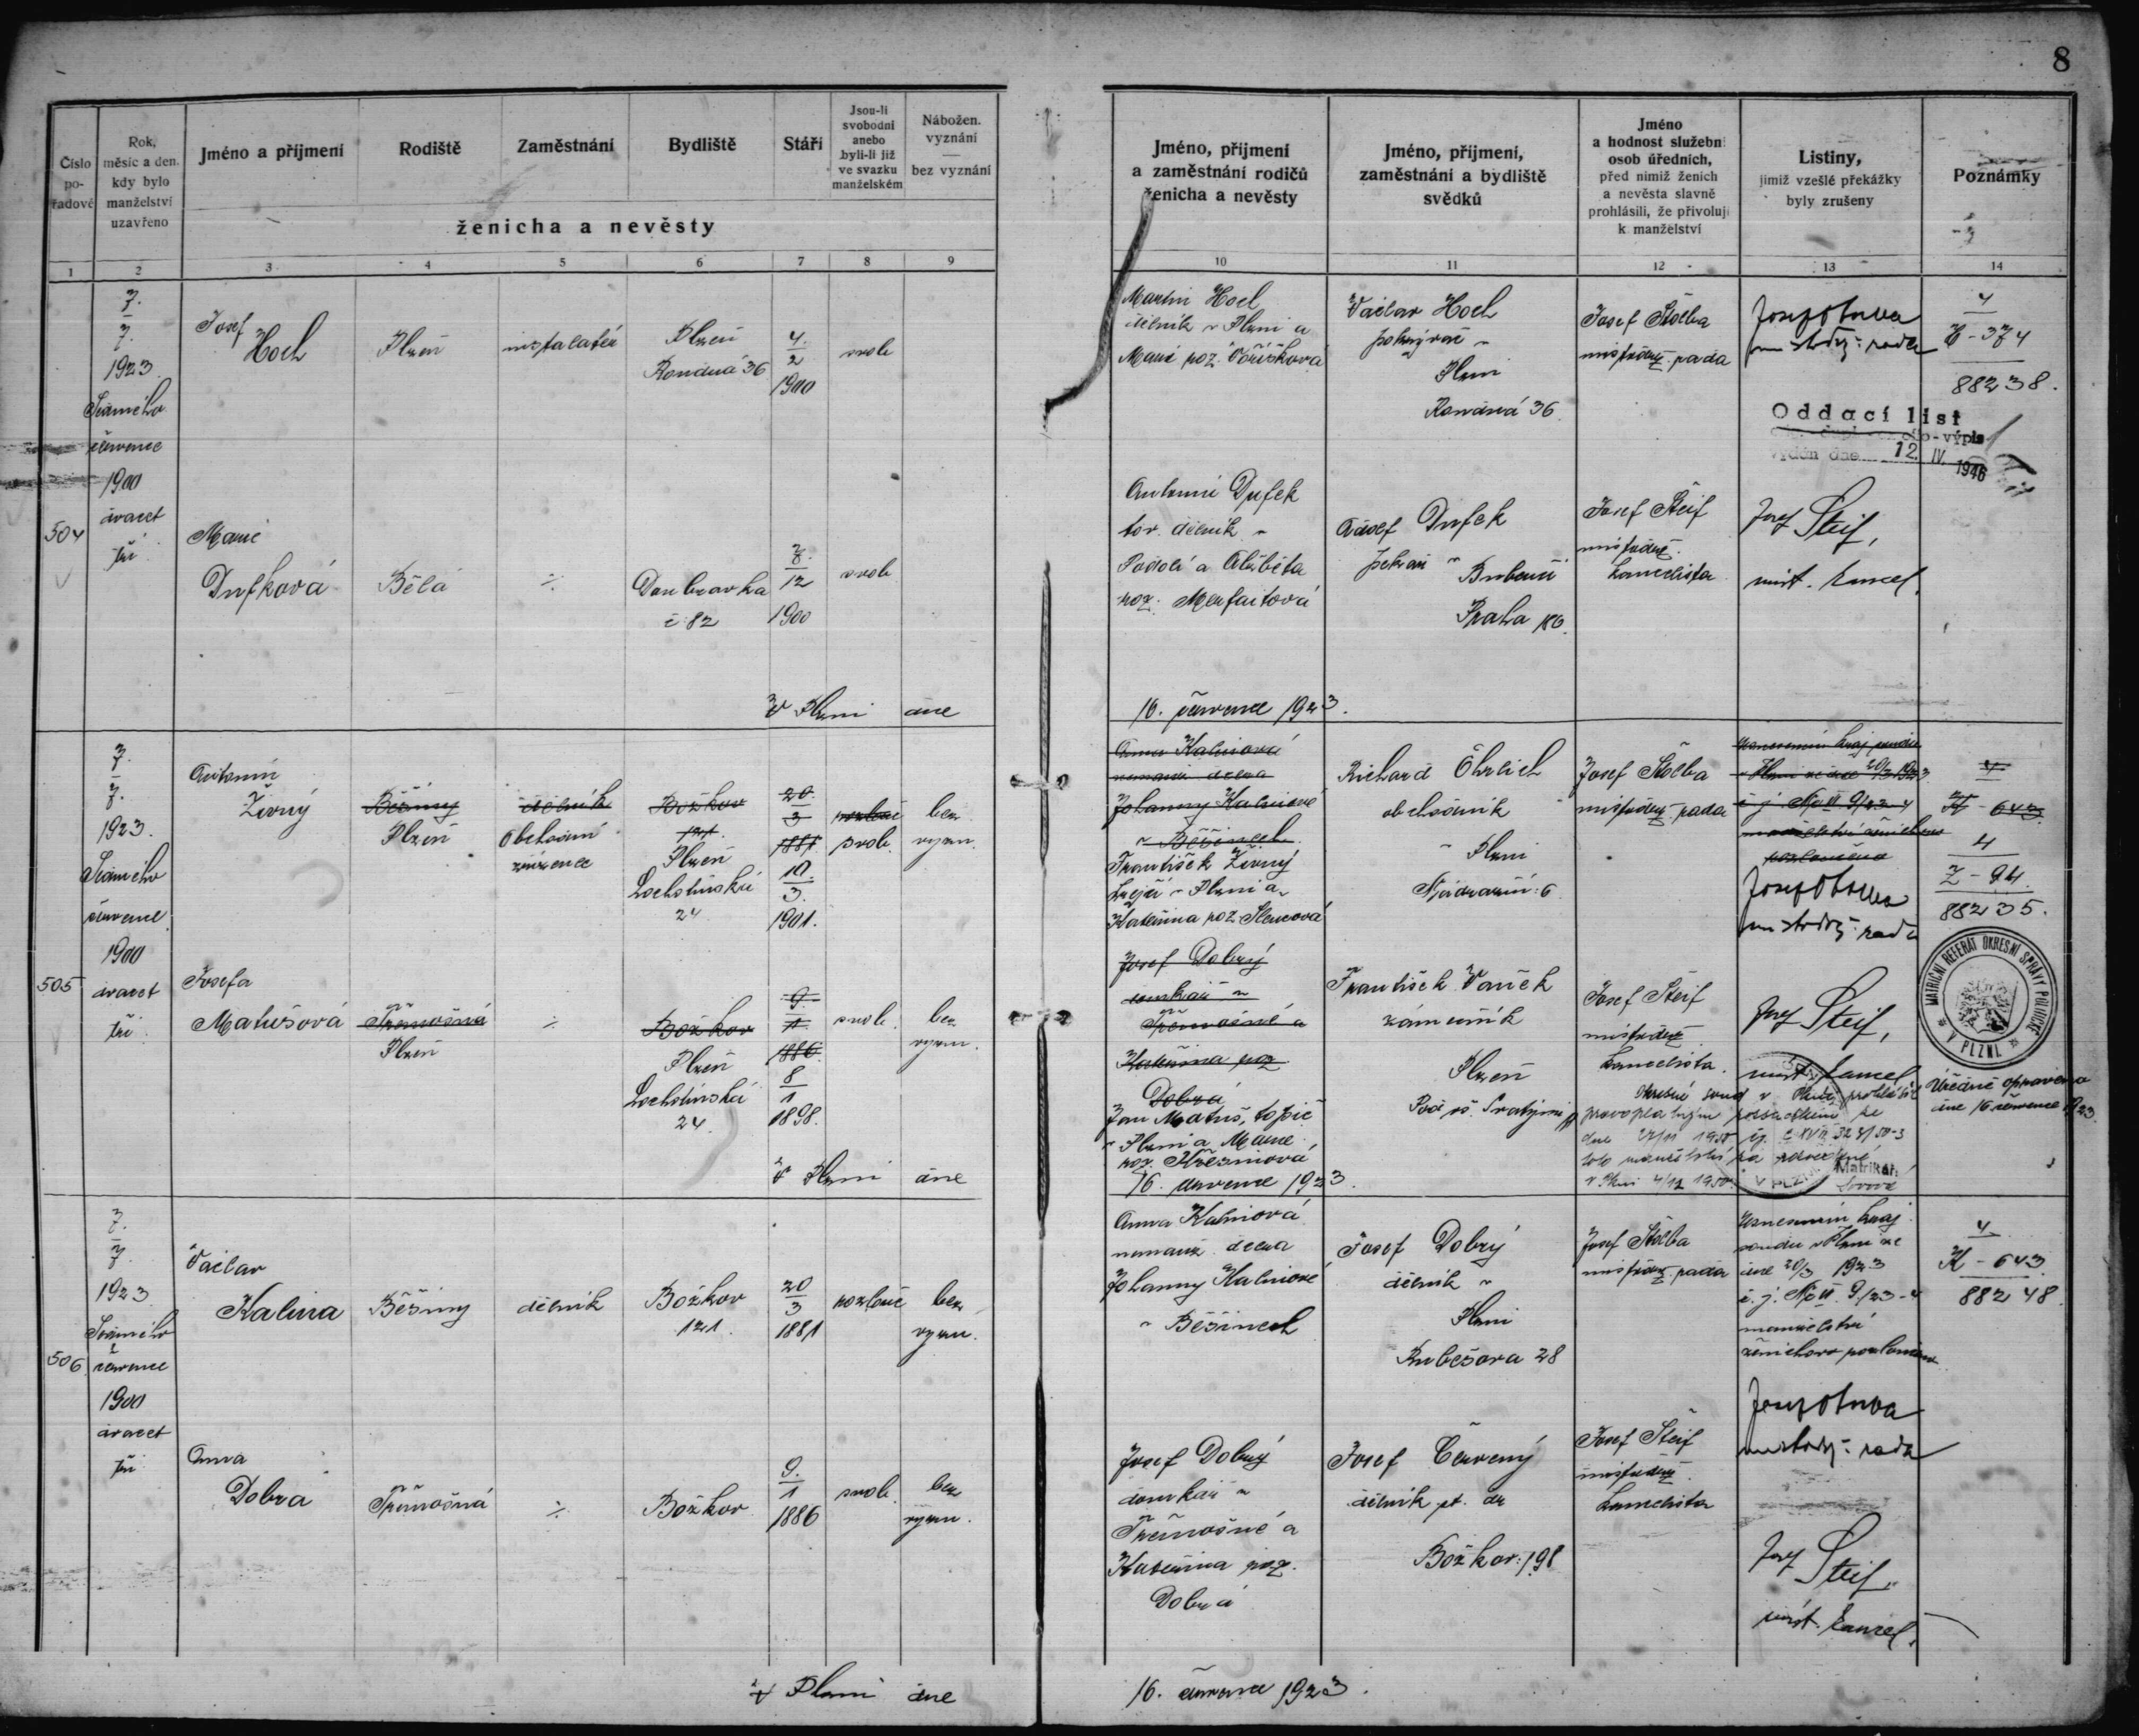 8
Číslo po-řadové
Rok, měsíc a den, kdy bylo manželství uzavřeno
Jméno a příjmení
Rodiště
Zaměstnání
Bydliště
Stáří
Jsou-li svobodni anebo byli-li již ve svazku manželském
Nábožen. vyznání — bez vyznání
ženicha a nevěsty
Jméno, příjmení a zaměstnání rodičů ženicha a nevěsty
Jméno, příjmení, zaměstnání a bydliště svědků
Jméno a hodnost služební osob úředních, před nimiž ženich a nevěsta slavně prohlásili, že přivolují k manželství
Listiny, jimiž vzešlé překážky byly zrušeny
Poznámky
1 2 3 4 5 6 7 8 9 10 11 12 13 14
504
7.
7.
1923
Sedmého
července
1900
dvacet
tři
Josef
Hoch
Plzeň
instalatér
Plzeň
36
4.
2
1900
svob.
Martin Hoch
dělník v Plzni a
Marie roz.
Václav Hoch
pokrývač v
Plzni
36
Josef Štolba
místodrž. rada
4
H - 374
88238.
Oddací list
vydán dne 12. IV. 1946
Marie
Dufková
Bělá
÷
Doubravka
č. 82
7.
12
1900
svob.
Antonín Dufek
tov. dělník v
Podolí a Alžběta
roz.
Adolf Dufek
pekař v
Bubenči
Praha
Josef Šteif
místodrž.
kancelista
Josef Šteif,
míst. kancel.
V Plzni dne 16. července 1923.
505
7.
7.
1923.
Sedmého
července
1900
dvacet
tři
Antonín
Živný
Běšiny
Plzeň
dělník
Obchodní
zřízenec
Božkov
121
Plzeň
Lochotínská
24
20.
3
1881
10.
3.
1901.
rozlouč
svob.
bez
vyzn.
Anna Kalinová
nemanž. dcera
Johanny Kalinové
v Běšinech
František Živný
krejčí v Plzni a
Kateřina roz.
Richard Öhrlich
obchodník
v Plzni
Nádražní 6
Josef Štolba
místodrž. rada
Usnesením kraj. soudu
v Plzni ze dne 20/3 1923
č. j. Nc VI 9/23-4
manželství ženichovo
rozloučeno
4
K - 643
4
Z - 94
88235.
Josefa
Matušová
Třemošná
Plzeň
÷
Božkov
Plzeň
Lochotínská
24.
9
1
1886
8
1
1898.
svob.
bez
vyzn.
Josef Dobrý
domkář v
Třemošné a
Kateřina roz.
Dobrá
Jan Matuš, topič
v Plzni a Marie
roz.
František Vaněk
zámečník
Plzeň
Josef Šteif
místodrž.
kancelista.
Josef Šteif,
míst. kancel.
MATRIČNÍ REFERÁT OKRESNÍ SPRÁVY POLITICKÉ
V PLZNI
Úředně opraveno
dne 16. července 1923
Okresní soud v Plzni prohlásil
pravoplatným rozsudkem ze
dne 27/11 1950
toto manželství za rozvedené
v Plzni 4/12 1950.
Matrikář:
V PLZNI
V Plzni dne 16. července 1923.
506
7.
7.
1923
Sedmého
července
1900
dvacet
tři
Václav
Kalina
Běšiny
dělník
Božkov
121.
20
3
1881
rozlouč
bez
vyzn.
Anna Kalinová
nemanž. dcera
Johanny Kalinové
v Běšinech
Josef Dobrý
dělník v
Plzni
Kubešova 28
Josef Štolba
místodrž. rada
Usnesením kraj.
soudu v Plzni ze
dne 20/3 1923
č. j. Nc VI 9/23-4
manželství
ženichovo rozloučeno
4
K - 643
88248.
Anna
Dobrá
Třemošná
÷
Božkov
9.
1
1886
svob.
bez
vyzn.
Josef Dobrý
domkář v
Třemošné a
Kateřina roz.
Dobrá
Josef Červený
dělník st. dr.
Božkov 198
Josef Šteif
místodrž.
kancelista
Josef Šteif,
míst. kancel.
V Plzni dne 16. července 1923.